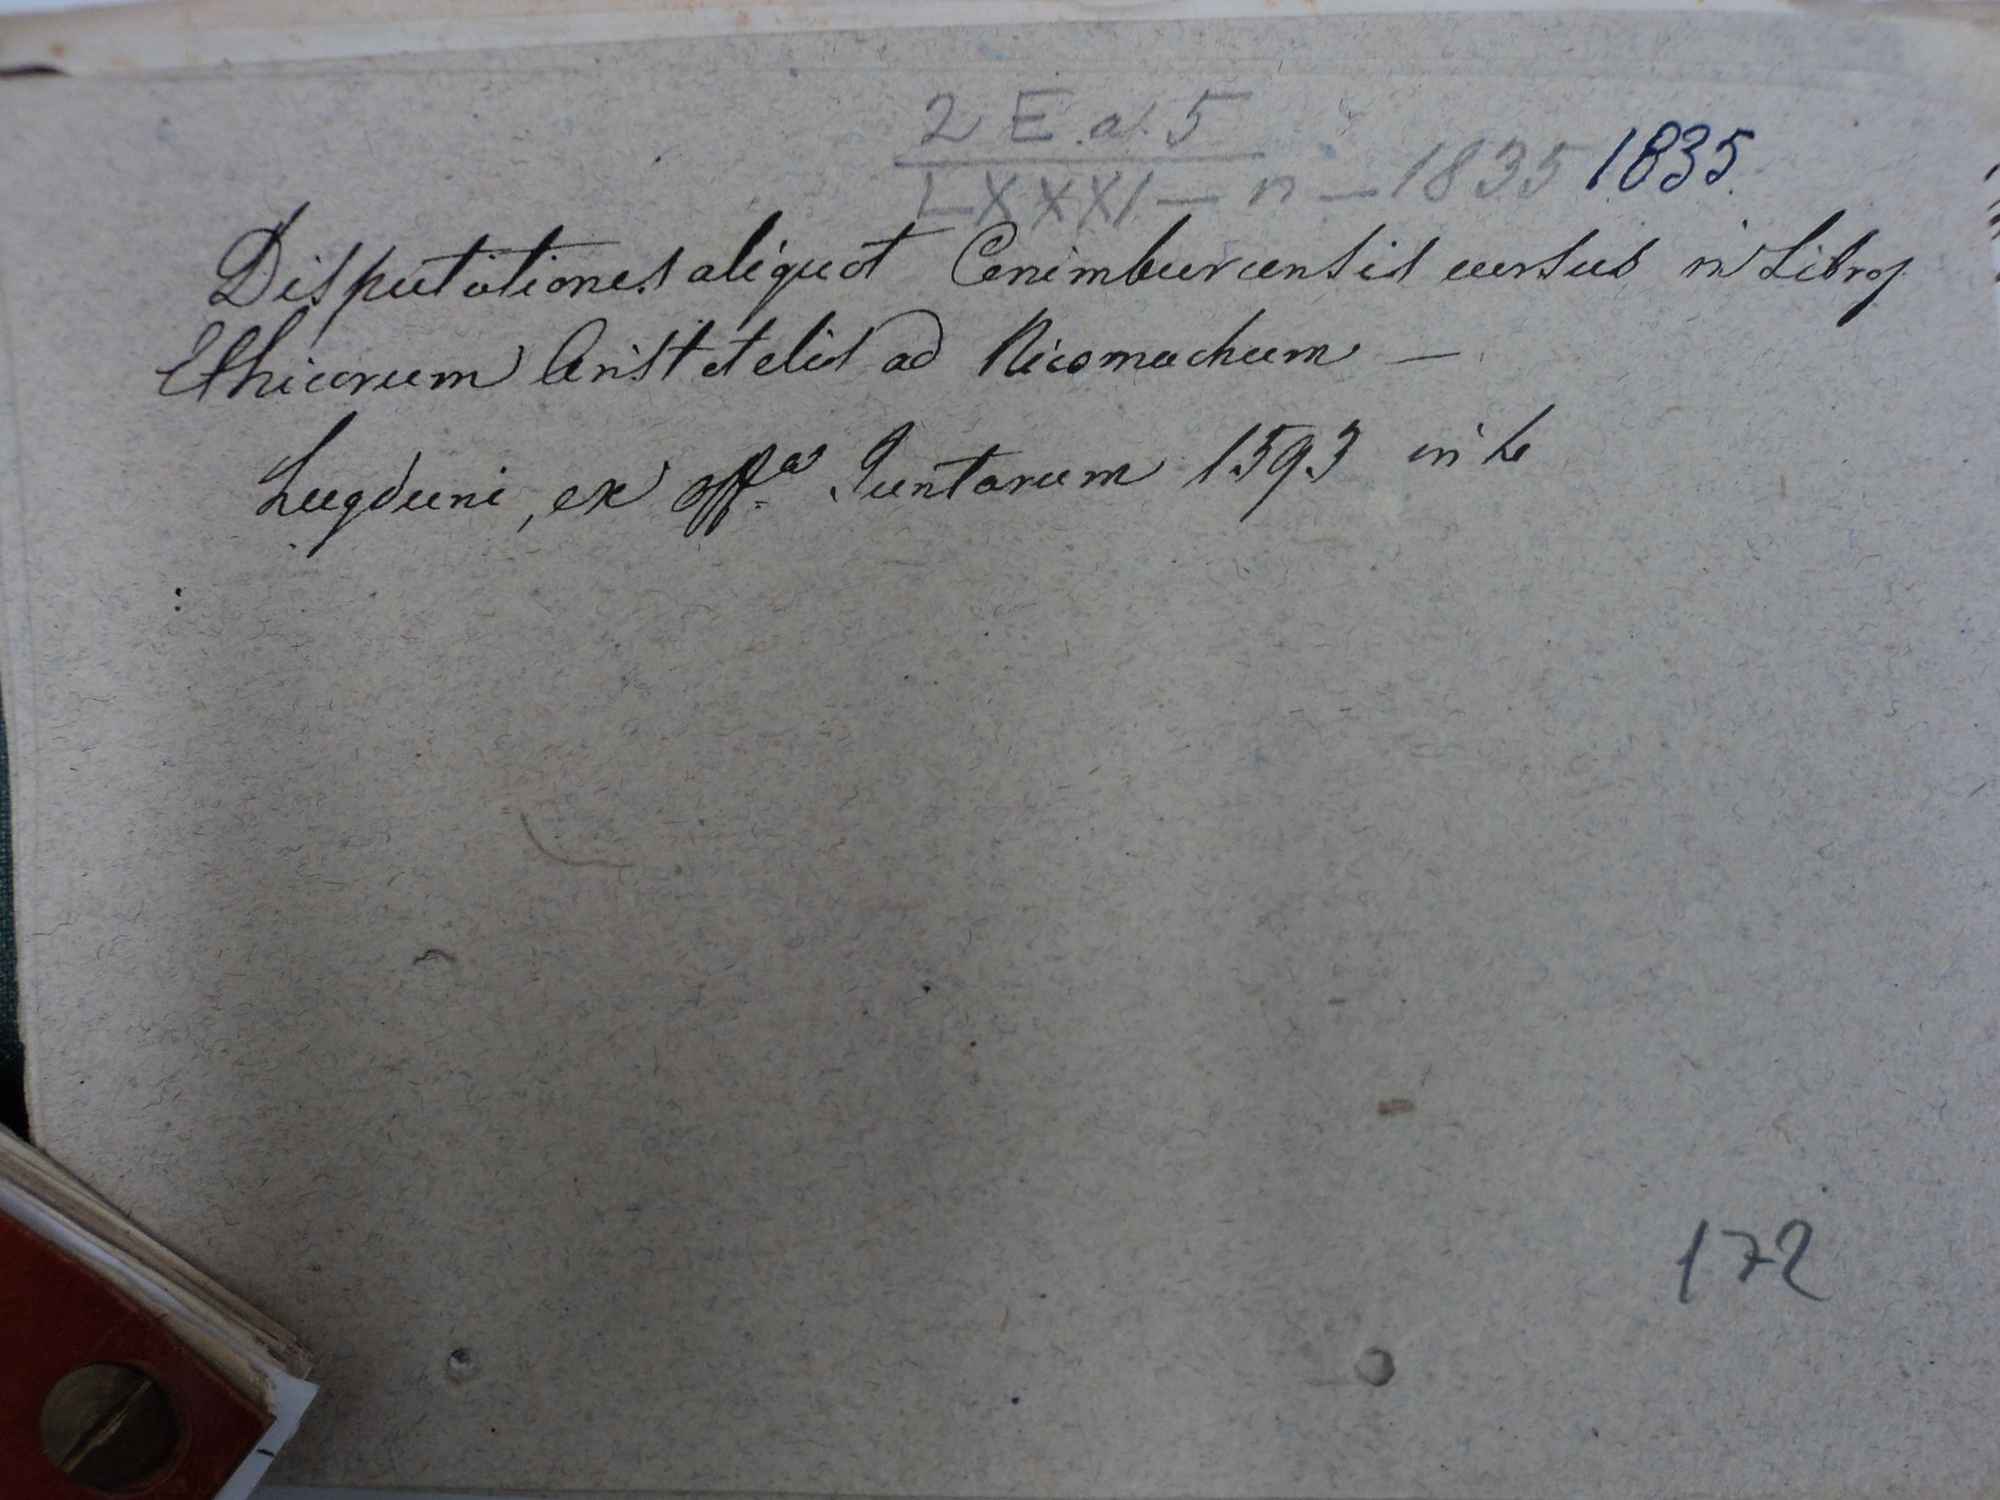 2 E. a. 5
LXXXI — n — 1835 1835.
Disputationes aliquot Conimburcensis cursus in Libros
Ethicorum Aristotelis ad Nicomachum —
Lugduni, ex off.ª Juntarum 1593 in 4
172